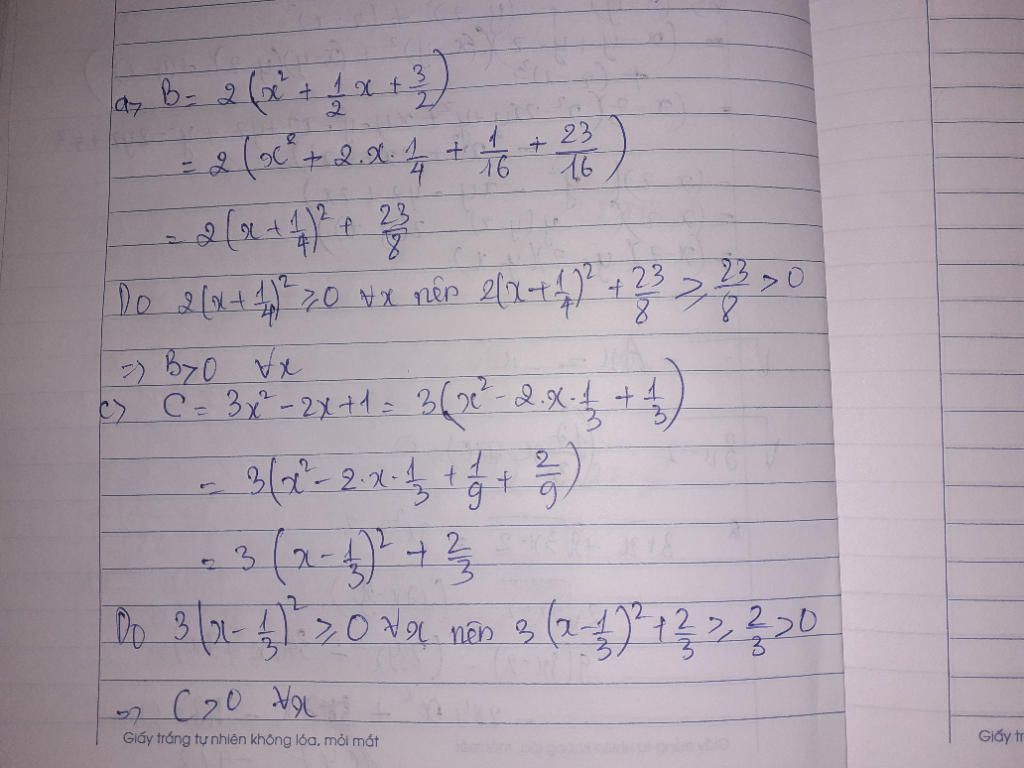 a> B = 2(x² + 1/2 x + 3/2)
= 2(x² + 2.x.1/4 + 1/16 + 23/16)
= 2(x + 1/4)² + 23/8
Do 2(x + 1/4)² ≥ 0 ∀x nên 2(x + 1/4)² + 23/8 ≥ 23/8 > 0
=> B > 0 ∀x
c> C = 3x² - 2x + 1 = 3(x² - 2.x.1/3 + 1/3)
= 3(x² - 2.x.1/3 + 1/9 + 2/9)
= 3(x - 1/3)² + 2/3
Do 3(x - 1/3)² ≥ 0 ∀x nên 3(x - 1/3)² + 2/3 ≥ 2/3 > 0
=> C > 0 ∀x
Giấy trắng tự nhiên không lóa, mỏi mắt
Giấy